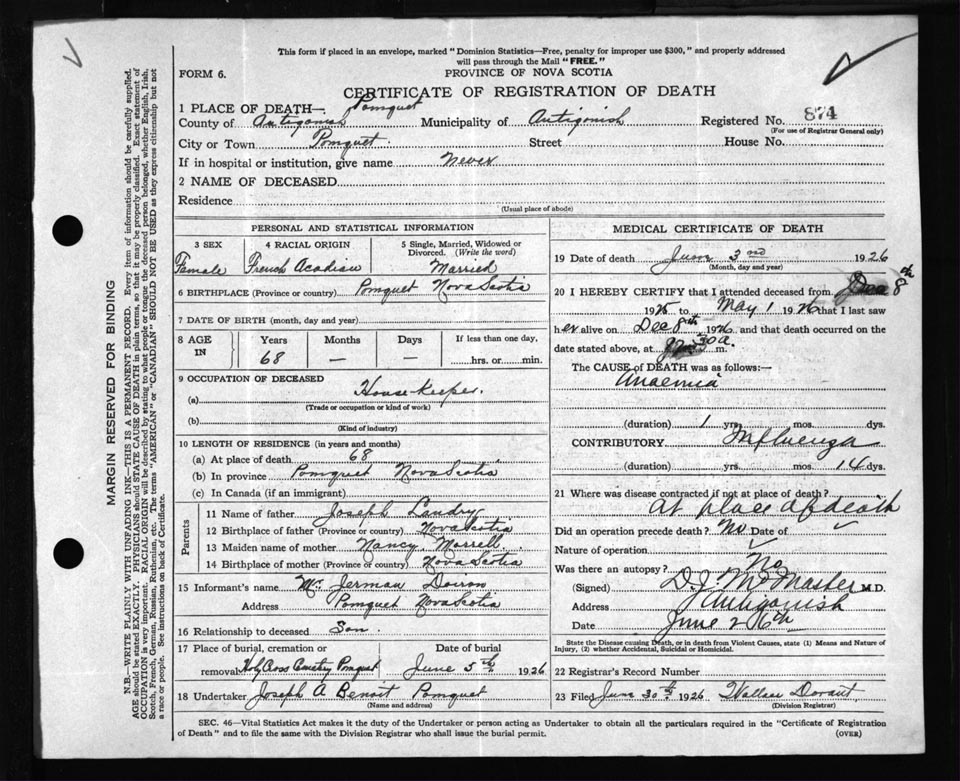 This form if placed in an envelope, marked "Dominion Statistics—Free, penalty for improper use $300," and properly addressed
will pass through the Mail "FREE."
FORM 6.
PROVINCE OF NOVA SCOTIA
CERTIFICATE OF REGISTRATION OF DEATH
1 PLACE OF DEATH— Pomquet
County of Antigonish Municipality of Antigonish Registered No. 874
(For use of Registrar General only)
City or Town Pomquet. Street House No.
If in hospital or institution, give name Never
2 NAME OF DECEASED
Residence
(Usual place of abode)
PERSONAL AND STATISTICAL INFORMATION
3 SEX
Female
4 RACIAL ORIGIN
French Acadian
5 Single, Married, Widowed or
Divorced. (Write the word)
Married
6 BIRTHPLACE (Province or country) Pomquet Nova Scotia
7 DATE OF BIRTH (month, day and year)
8 AGE
IN
Years Months Days If less than one day,
68 — — hrs. or min.
9 OCCUPATION OF DECEASED
(a) House keeper.
(Trade or occupation or kind of work)
(b)
(Kind of industry)
10 LENGTH OF RESIDENCE (in years and months)
(a) At place of death 68
(b) In province Pomquet Nova Scotia
(c) In Canada (if an immigrant)
Parents
11 Name of father Joseph Landry
12 Birthplace of father (Province or country) Nova Scotia
13 Maiden name of mother Nancy Morrell
14 Birthplace of mother (Province or country) Nova Scotia
15 Informant's name Mr. Jerman Doiron
Address Pomquet Nova Scotia
16 Relationship to deceased Son.
17 Place of burial, cremation or Date of burial
removal Holy Cross Cemetry Pomquet June 5th 1926
18 Undertaker Joseph A Benoit Pomquet
(Name and address)
MEDICAL CERTIFICATE OF DEATH
19 Date of death June 3nd 1926
(Month, day and year)
20 I HEREBY CERTIFY that I attended deceased from Dec 8th
1925 to May 1 1926 that I last saw
her alive on Dec 8th 1926 and that death occurred on
date stated above, at 30 a. m.
The CAUSE of DEATH was as follows:—
Anaemia
(duration) 1 yrs. mos. dys.
CONTRIBUTORY Influenza
(duration) yrs. mos. 14 dys.
21 Where was disease contracted if not at place of death?
At place of death
Did an operation precede death? No Date of
Nature of operation
Was there an autopsy? No
(Signed) D.J. McMaster M.D.
Address Antigonish
Date June 26th
State the Disease causing Death, or in death from Violent Causes, state (1) Means and Nature of
Injury, (2) whether Accidental, Suicidal or Homicidal.
22 Registrar's Record Number
23 Filed June 30th 1926 Wallace
(Division Registrar)
SEC. 46—Vital Statistics Act makes it the duty of the Undertaker or person acting as Undertaker to obtain all the particulars required in the "Certificate of Registration
of Death" and to file the same with the Division Registrar who shall issue the burial permit.
(OVER)
MARGIN RESERVED FOR BINDING
N.B.—WRITE PLAINLY WITH UNFADING INK—THIS IS A PERMANENT RECORD. Every item of information should be carefully supplied.
AGE should be stated EXACTLY. PHYSICIANS should STATE CAUSE OF DEATH in plain terms, so that it may be properly classified. Exact statement of
OCCUPATION is very important. RACIAL ORIGIN will be described by stating to what people or tongue the deceased person belonged, whether English, Irish,
Scotch, French, German, Russian, Ruthenian, etc. The terms "AMERICAN" or "CANADIAN" SHOULD NOT BE USED as they express citizenship but not
a race or people. See instructions on back of Certificate.